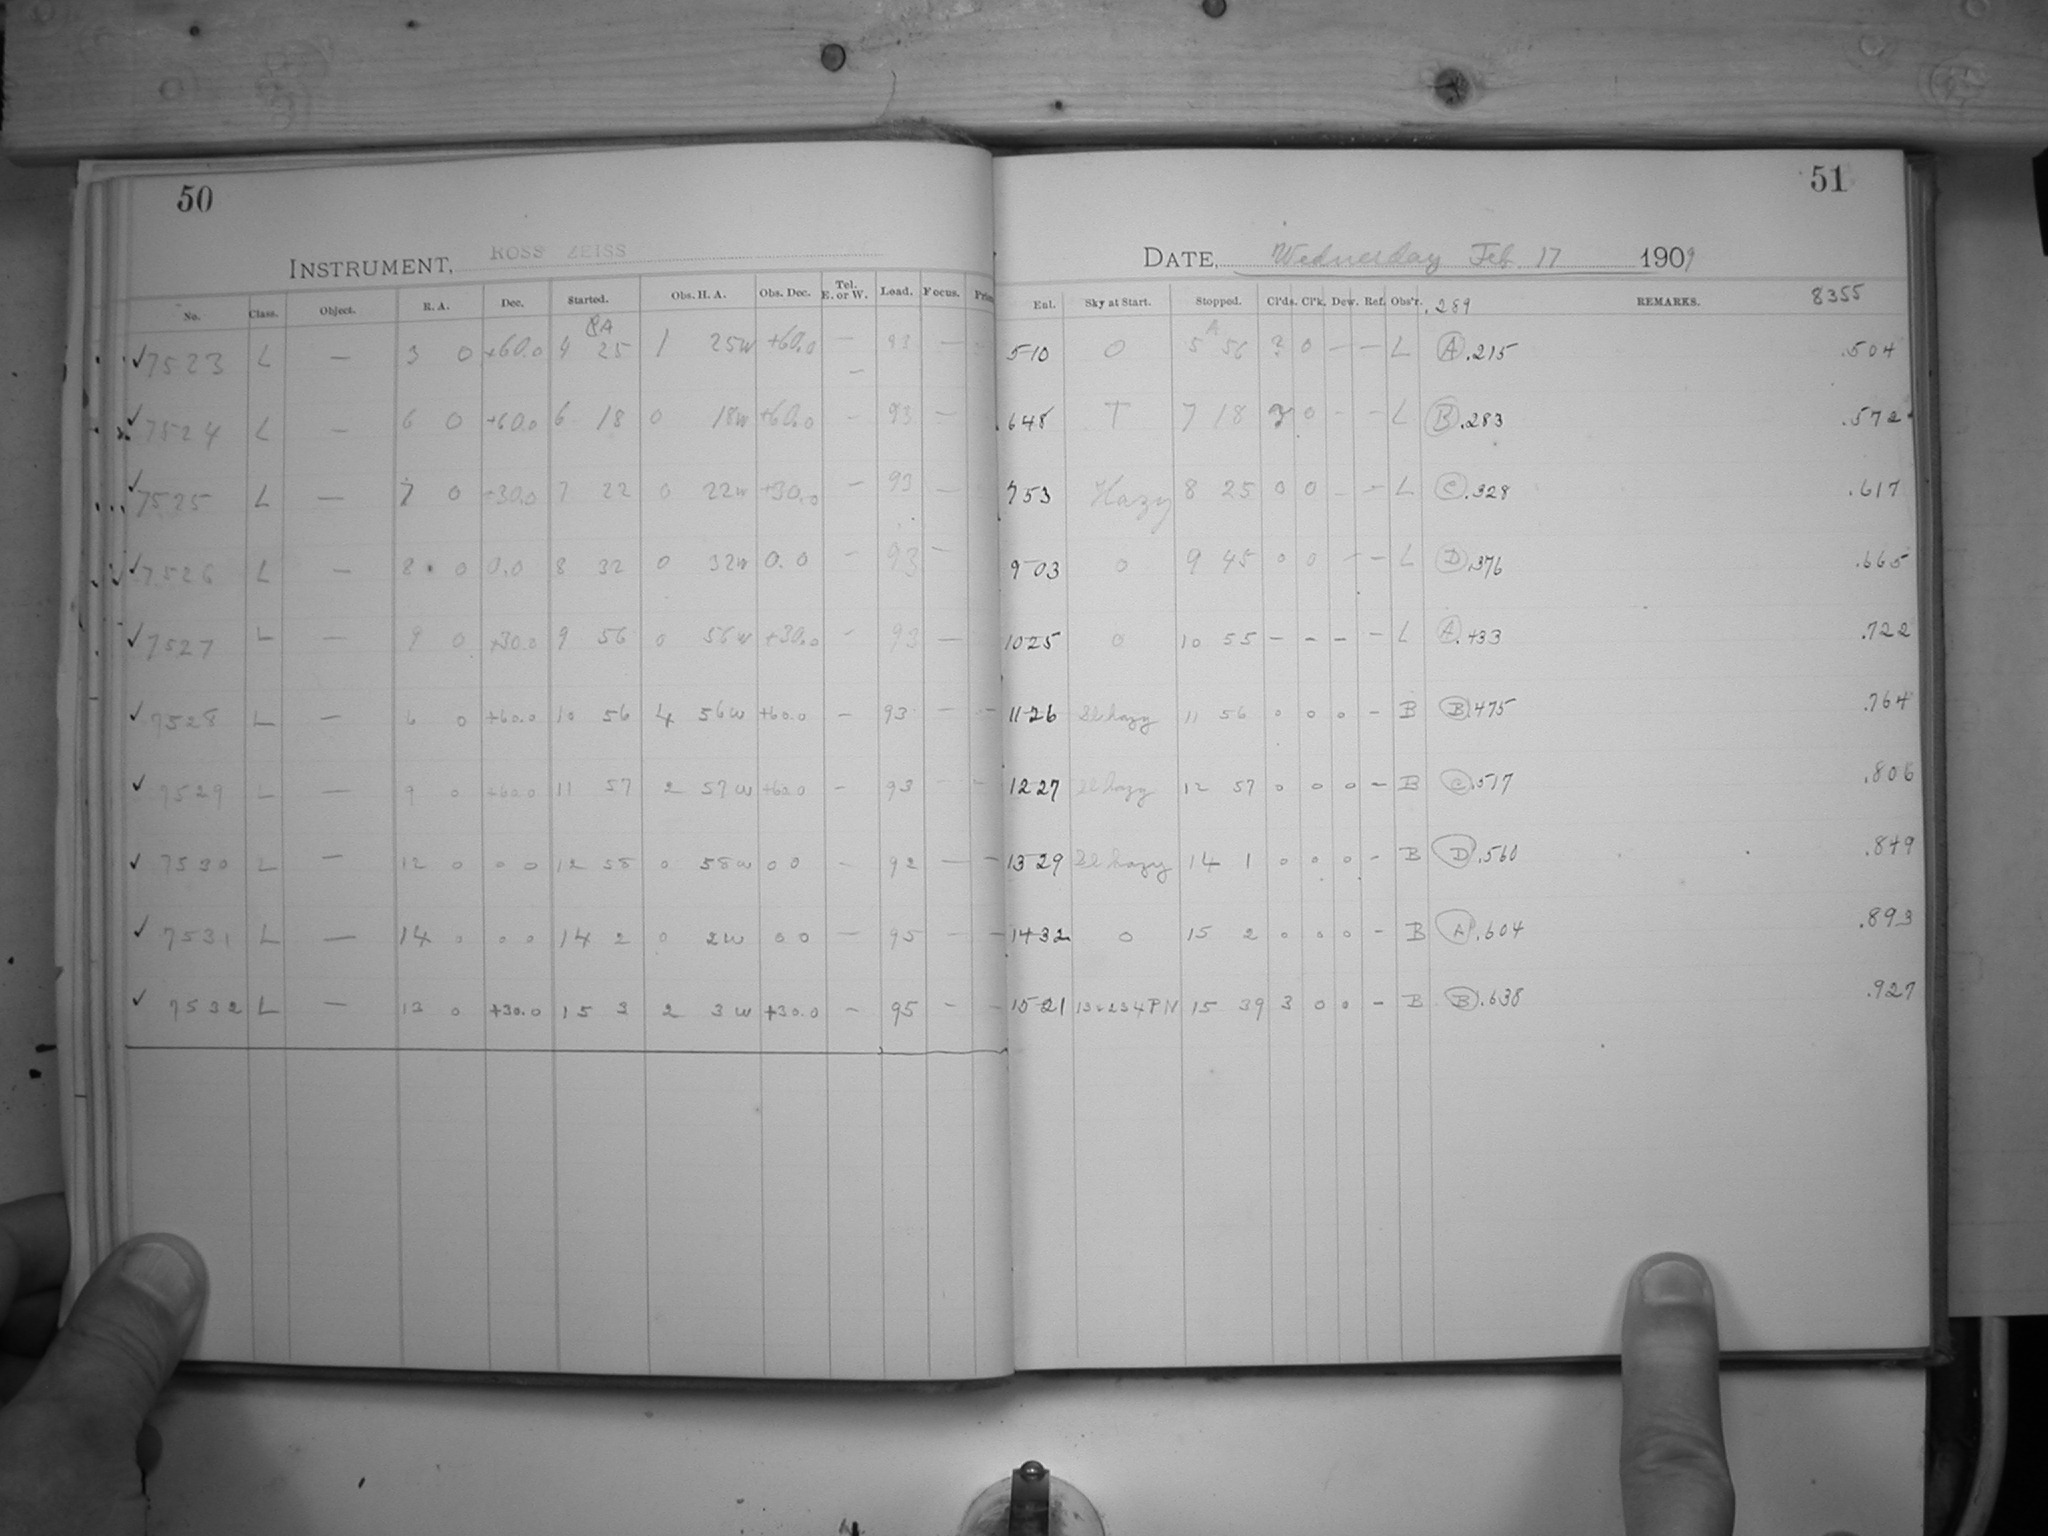 50
51
INSTRUMENT, ROSS ZEISS
DATE, Wednesday Feb. 17 1909
No. Class. Object. R. A. Dec. Started. Obs. H. A. Obs. Dec. Tel. E. or W. Load. Focus. Enl. Sky at Start. Stopped. Cl'ds. Cl'k. Dew. Ref. Obs'r. .289 REMARKS. 8355
✓7523 L — 3 0 +60.0 4 25 1 25w +60.0 — 93 — 5 10 0 5 56 ? 0 — — L A .215 .504
✓7524 L — 6 0 +60.0 6 18 0 18w +60.0 - 93 — 6 48 T 7 18 3 0 - - L B .283 .572
✓7525 L — 7 0 +30.0 7 22 0 22w +30.0 - 93 — 7 53 Hazy 8 25 0 0 - - L C .328 .617
✓7526 L — 8 0 0.0 8 32 0 32w 0.0 - 93 - 9 03 0 9 45 0 0 - - L D .376 .665
✓7527 L — 9 0 +30.0 9 56 0 56w +30.0 - 93 — 10 25 0 10 55 - - - - L A .433 .722
✓7528 L — 6 0 +60.0 10 56 4 56w +60.0 - 93 - - 11 26 Sl hazy 11 56 0 0 0 - B B .475 .764
✓7529 L — 9 0 +60.0 11 57 2 57w +60.0 - 93 - - 12 27 Sl hazy 12 57 0 0 0 - B C .517 .806
✓7530 L — 12 0 0 0 12 58 0 58w 0 0 - 92 — - 13 29 Sl hazy 14 1 0 0 0 - B D .560 .849
✓7531 L — 14 0 0 0 14 2 0 2w 0 0 — 95 - - 14 32 0 15 2 0 0 0 - B A .604 .893
✓7532 L — 13 0 +30.0 15 3 2 3w +30.0 - 95 - - 15 21 15 39 3 0 0 - B B .638 .927